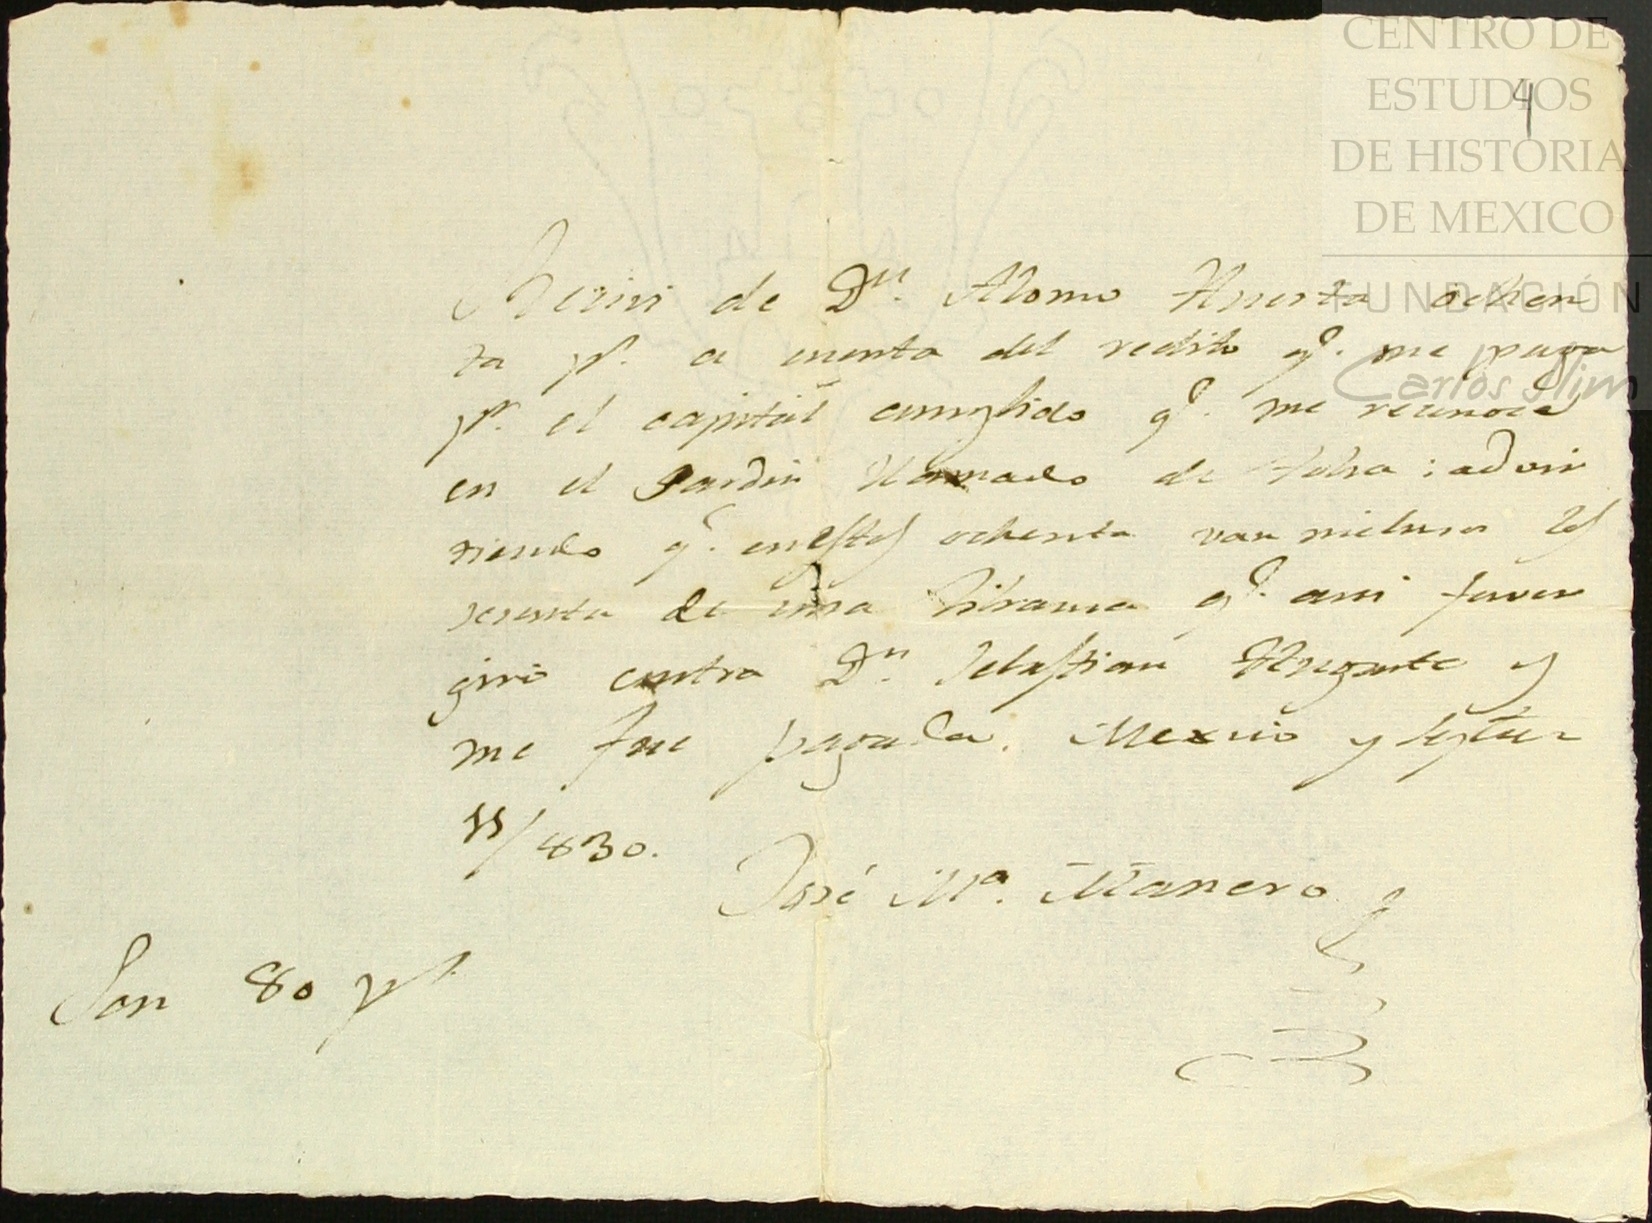 CENTRO DE
ESTUDIOS
DE HISTORIA
DE MEXICO
FUNDACIÓN
Carlos Slim
4
Recivi de Dn. Alonso Huerta ochen
ta ps. a cuenta del redito qe. me paga
pr. el capital cumplido qe. me reconoce
en el Jardin llamado de Tolsa: advir
tiendo qe. en estos ochenta van inclusos los
sesenta de una libranza qe. ami favor
giró contra Dn. Sebastian
me fue pagada. Mexico y Septue
11/830.
José Ma. Manero
Son 80 ps.